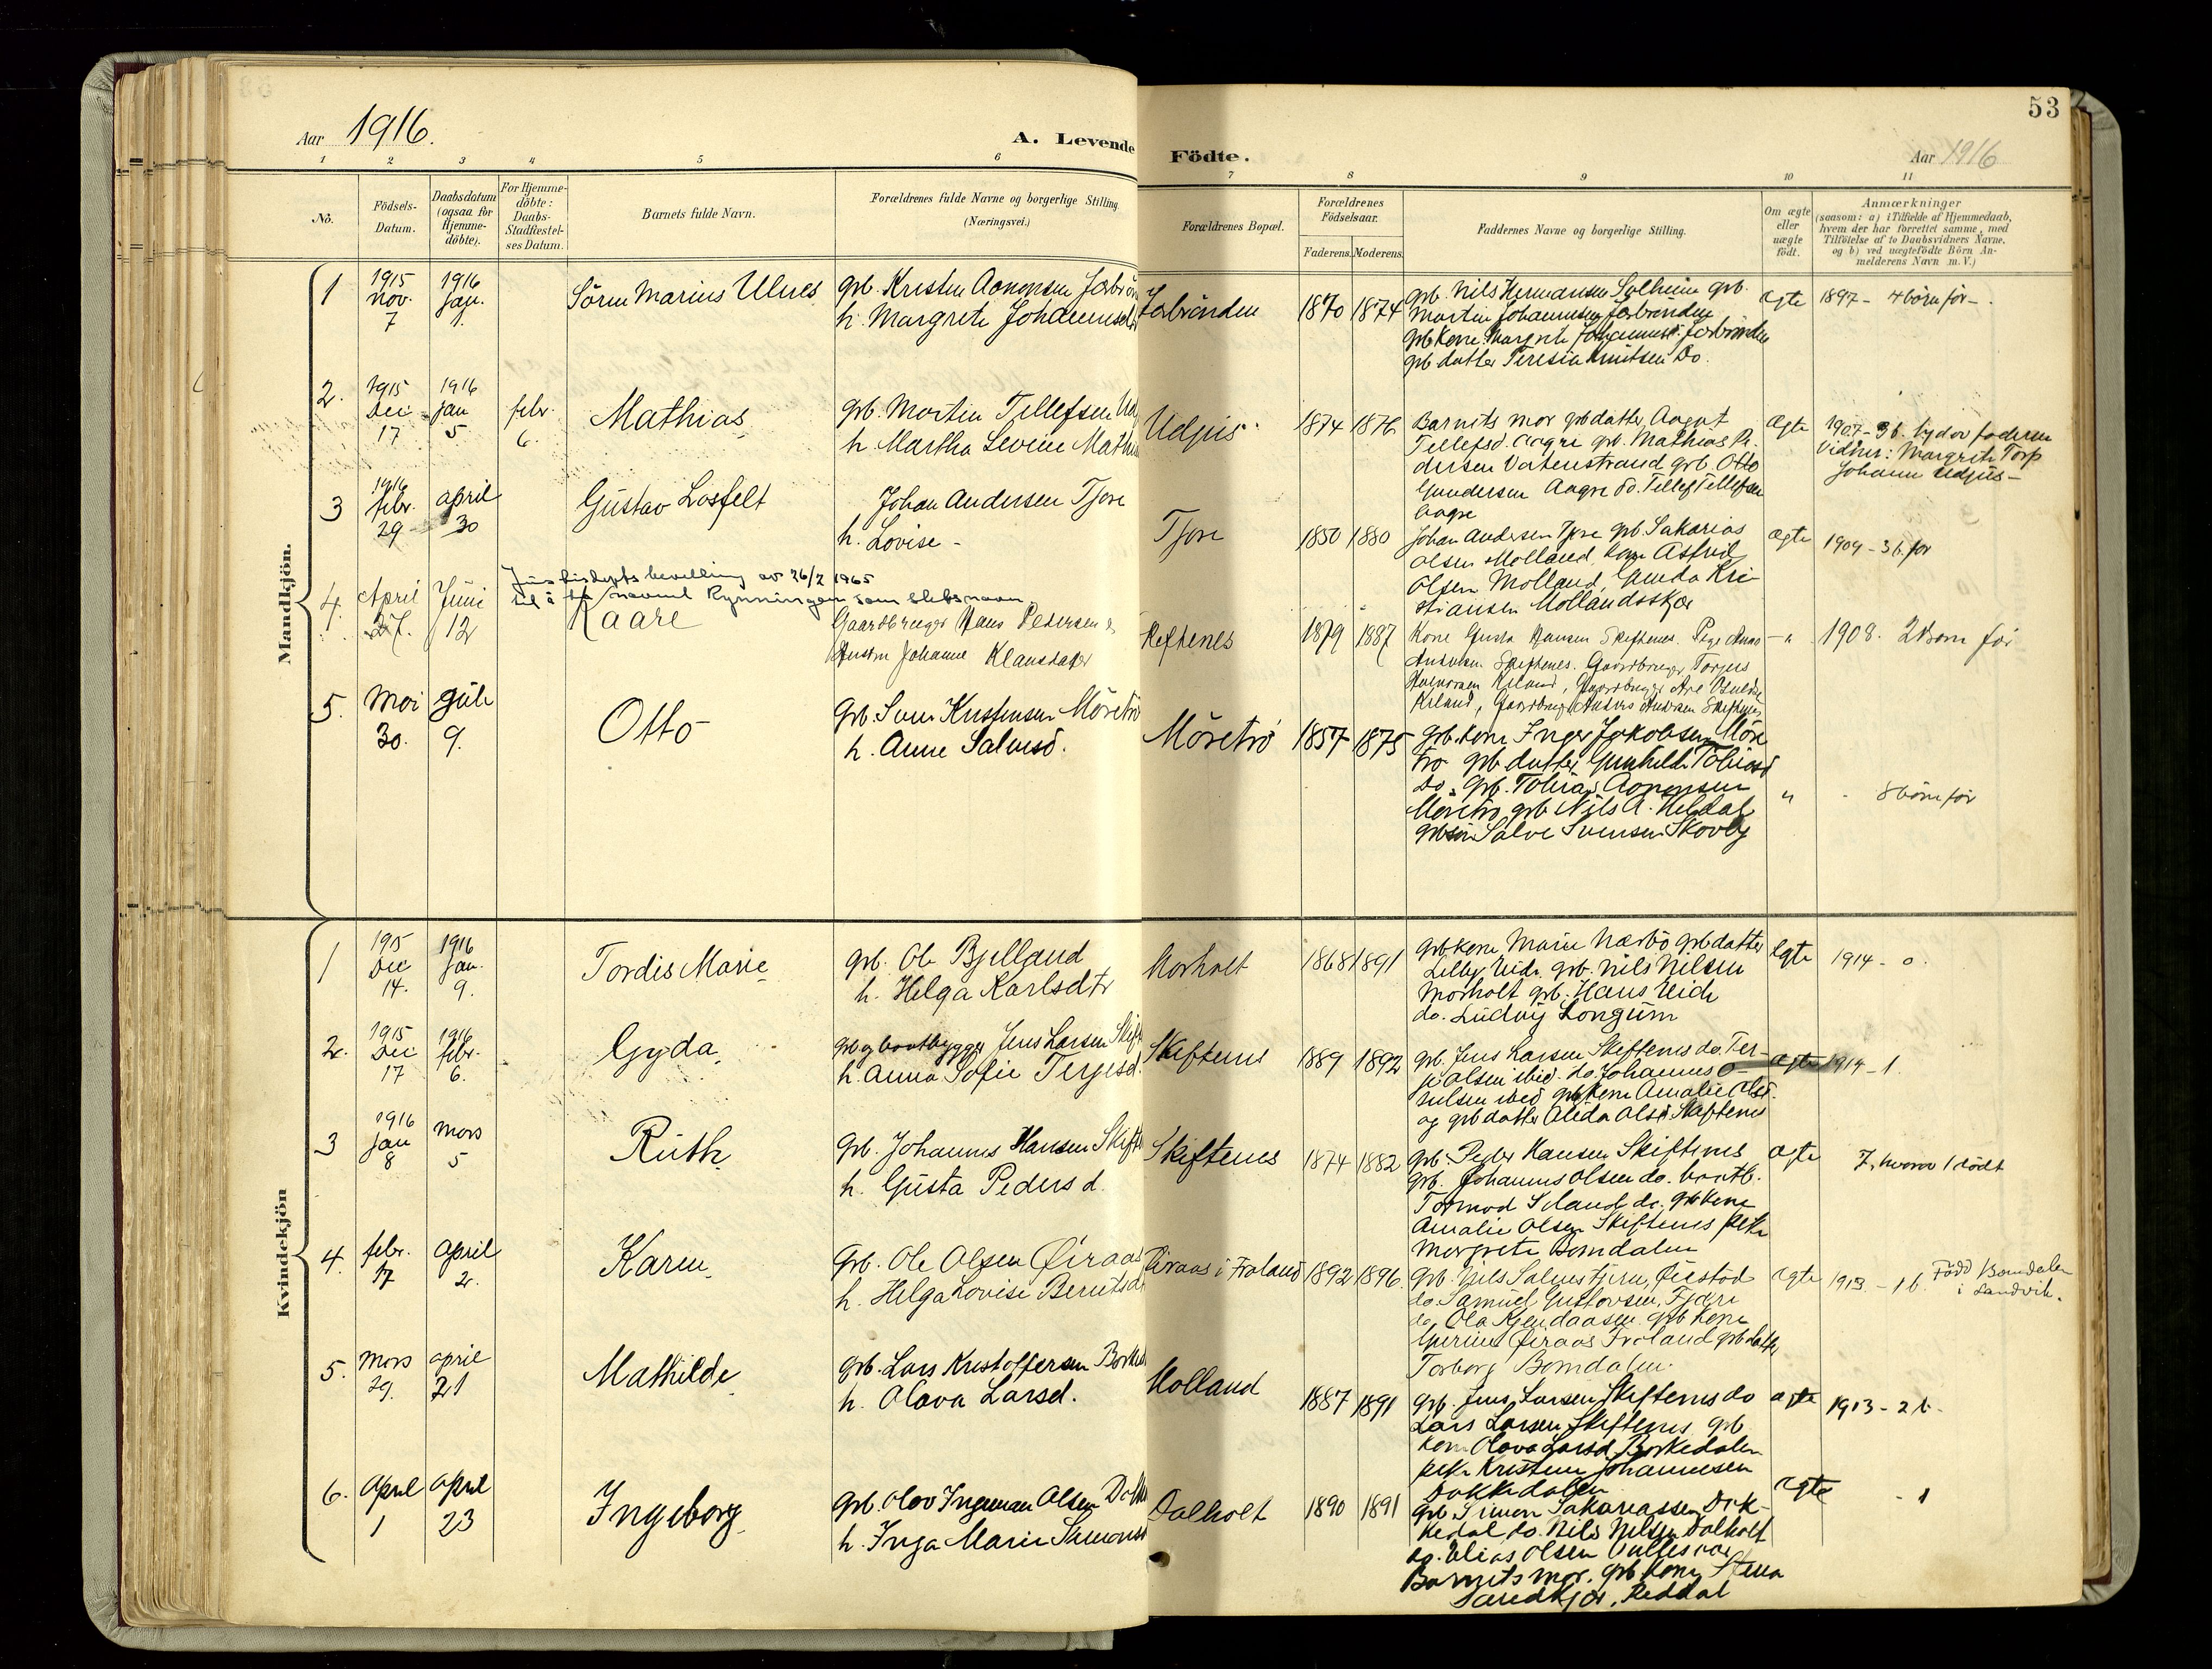 53
Aar 1916.
A. Levende Födte.
Aar 1916
1 2 3 4 5 6 7 8 9 10 11
No.
Födsels-Datum.
Daabsdatum (ogsaa for Hjemme-döbte).
For Hjemme-döbte: Daabs-Stadfæstel-ses Datum.
Barnets fulde Navn.
Forældrenes fulde Navne og borgerlige Stilling
(Næringsvei.)
Forældrenes Bopæl.
Forældrenes Födselsaar.
Faderens. Moderens.
Faddernes Navne og borgerlige Stilling.
Om ægte eller uægte födt.
Anmærkninger
(saasom: a) i Tilfælde af Hjemmedaab,
hvem der har forrettet samme, med
Tilföielse af to Daabsvidners Navne.
og b) ved uægtefödte Börn An-
melderens Navn m. V.)
Mandkjön.
1
1915 nov. 7
1916 jan. 1.
Sören Marius Ulnes
grb. Kristen Aanonsen
h. Margrete
1870 1874
grb. Nils Hermansen Solheim grb.
Martin Johannesen
grb kone Margrete
grb datter Teresia Knutsen Do.
ægte
1897 - 4 börn för -
2.
1915 Dec 17
1916 jan 5
febr. 6.
Mathias
grb. Martin Tellefsen
h Martha Levine
Udjus
1874 1876
Barnets mor grb datter Aagot
Tellefsd. Aagre grb. Mathias Pe-
dersen Vatenstrand grb. Otto
Gundersen Aagre do. Tellef Tellefsen
Aagre
ægte
1907 - 3 b. faderen
Vidner: Margrete Torp
Johann Udjus -
3
1916 febr. 29
april 30
Gustav Losfelt
Johan Andersen Tjore
h. Lovise -
Tjore
1850 1880
Johan Andersen Tjore grb Sakarias
Olsen Molland, kone Astrid
Olsen Molland, Gunda Kri-
stiansen Mollandsskjær
ægte
1909 - 3 b. för
Justisdepts bevilling av 26/2 1965
til å ta navnet Rynningen som slektsnavn.
4.
April 27.
Juni 12
Kaare
Gaardbruger Hans Pedersen
Hustru Johanne Klausdatter
Skeftenes
1879 1887
Kone Gusta Hansen Skeftenes. Pige
Skeftenes. Gaardbruger Torjus
Gaardbruger
Gaardbruger Anders
- "
1908. 2 barn för
5.
Mai 30.
Juli 9.
Otto
Grb. Sven Kristensen Möretrö
h. Anne Salvesd.
Möretrö
1857 1875
grb. kone Inger Jakobsen Möre
trö grb datter Gunhilde Tobiasd
Do. grb. Tobias Aanonsen
Möretrö grb Nils A. Heldal
grb sön Salve Svensen Skovby
"
8 börn för
Kvindekjön
1
1915 Dec 14.
1916 Jan. 9.
Tordis Marie
grb. Ole Bjelland
h. Helga Karlsdtr
Morholt
1868 1891
grb kone Marie Nærbö grb datter
Lilly Eide. grb. Nils Nilsen
Morholt grb. Hans Eide
do. Ludvig Longum
ægte
1914 - 0.
2.
1915 Dec 17
1916 febr. 6.
Gyda
grb og baatbygger Jens Larsen
h. Anna Sofie Terjesd.
Skiftenes
1889 1892
grb. Jens Larsen Skeftenes do. Ter-
je Olsen ibid. do. Johannes O-
ibid grb kone Amalie Olsd.
og grb datter Alida Olsd Skiftenes
ægte
1914 - 1.
3
1916 jan 8
mars 5
Ruth
Grb. Johannes Hansen
h. Gusta Pedersd.
Skiftenes
1874 1882
grb. Peder Hansen Skiftenes
grb. Johannes Olsen do. baatb.
Tormod do. grb kone
Amalie Olsen Skiftenes
Margrete Bomdalen
ægte
7, hvorav 1 dödt
4.
febr. 17
april 2.
Karen
Grb. Ole Olsen Öiraas
h. Helga Lovise
Öiraas i Froland
1892 1896.
Grb. Nils Salvestjern, Öiestad
do. Samuel Gustavsen, Fjære
do. Ola grb kone
Öiraas Froland grb datter
Torborg Bomdalen.
ægte
1913. - 1 b. Född Bomdalen
i Landvik.
5.
Mars 29.
april 21
Mathilde
grb. Lars Kristoffersen
h. Olava Larsd.
Molland
1887 1891
grb. Jens Larsen Skiftenes do
Lars Larsen Skiftenes grb
kone Olava Larsd. Borkedalen
pike Kristine Johannesen
Dokkedalen
ægte
1913 - 2 b.
6.
April 1
april 23
Ingeborg
grb. Olav Ingeman Olsen
h. Inga Marie
Dalholt
1890 1891
grb Simon Sakariassen Dok-
kedal do. Nils Nilsen Dalholt
do. Elias Olsen
Barnets mor. grb kone Stena
Reddal
ægte
- 1